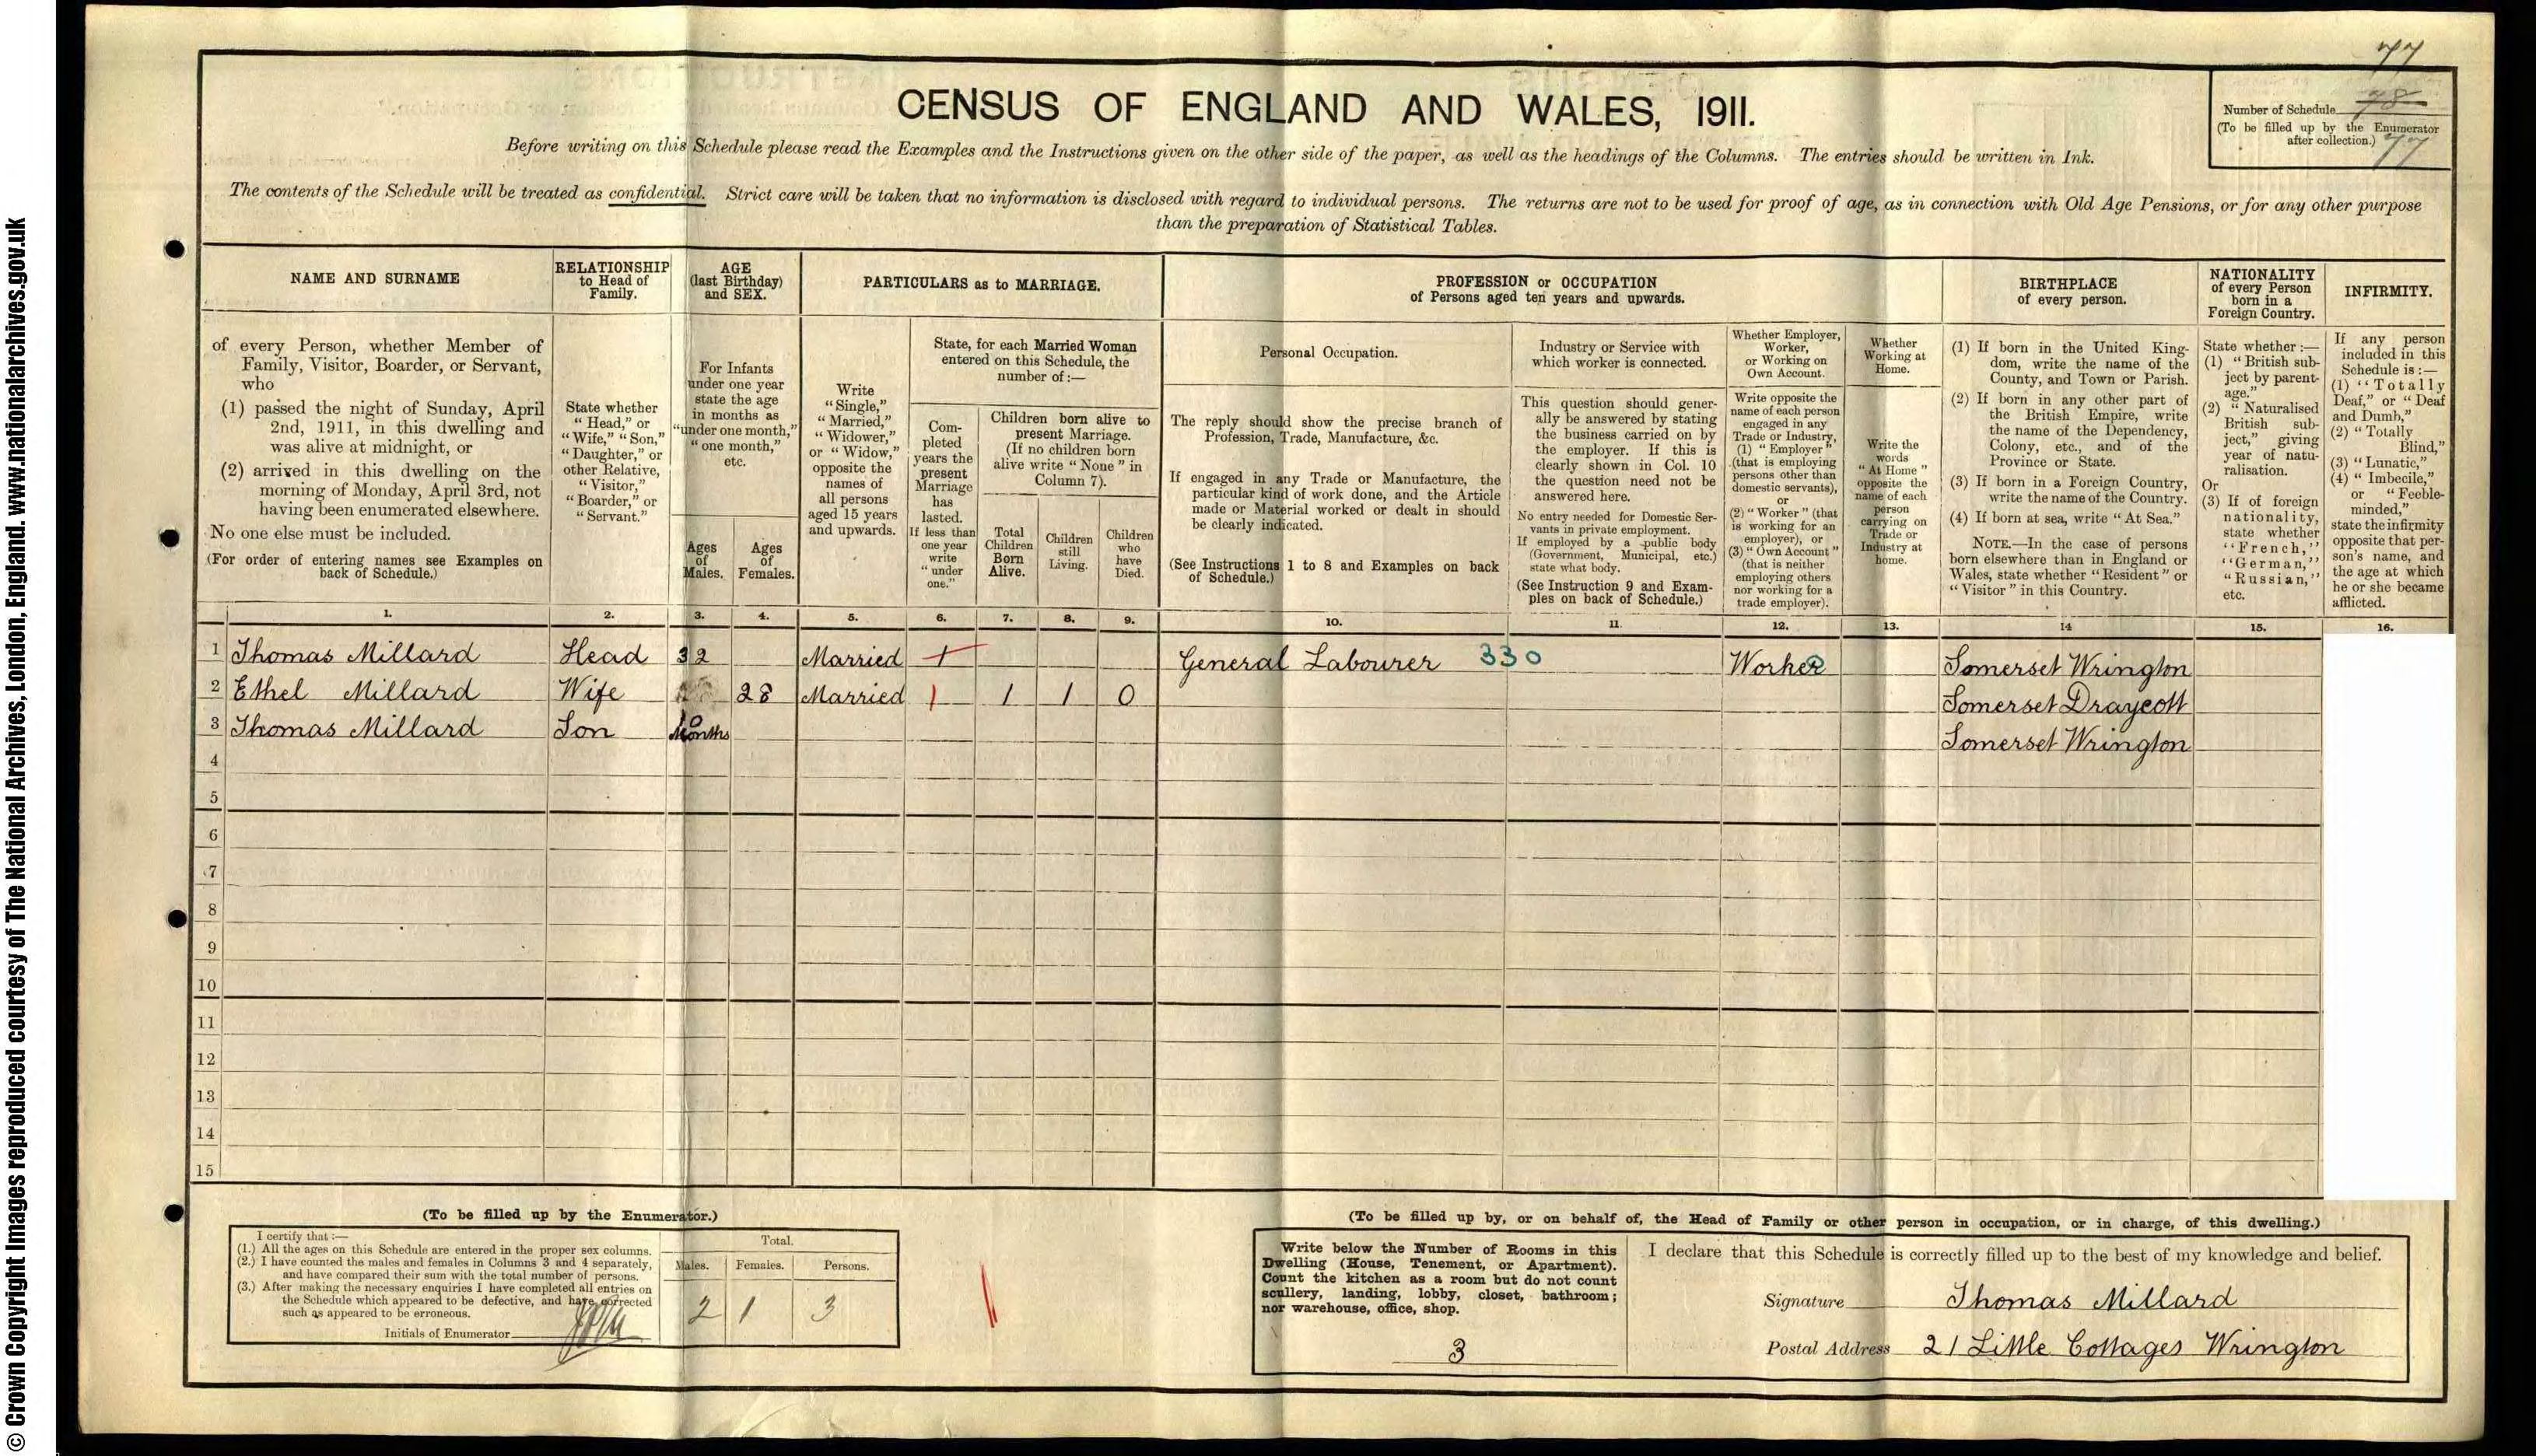 77
CENSUS OF ENGLAND AND WALES, 1911.
Number of Schedule 78
(To be filled up by the Enumerator after collection.) 77
Before writing on this Schedule please read the Examples and the Instructions given on the other side of the paper, as well as the headings of the Columns. The entries should be written in Ink.
The contents of the Schedule will be treated as confidential. Strict care will be taken that no information is disclosed with regard to individual persons. The returns are not to be used for proof of age, as in connection with Old Age Pensions, or for any other purpose
than the preparation of Statistical Tables.
NAME AND SURNAME
of every Person, whether Member of
Family, Visitor, Boarder, or Servant,
who
(1) passed the night of Sunday, April
2nd, 1911, in this dwelling and
was alive at midnight, or
(2) arrived in this dwelling on the
morning of Monday, April 3rd, not
having been enumerated elsewhere.
No one else must be included.
(For order of entering names see Examples on
back of Schedule.)
RELATIONSHIP
to Head of
Family.
State whether
"Head," or
"Wife," "Son,"
"Daughter," or
other Relative,
"Visitor,"
"Boarder," or
"Servant."
AGE
(last Birthday)
and SEX.
For Infants
under one year
state the age
in months as
"under one month,"
"one month,"
etc.
Ages
of
Males.
Ages
of
Females.
PARTICULARS as to MARRIAGE.
Write
"Single,"
"Married,"
"Widower,"
or "Widow,"
opposite the
names of
all persons
aged 15 years
and upwards.
State, for each Married Woman
entered on this Schedule, the
number of :—
Com-
pleted
years the
present
Marriage
has
lasted.
If less than
one year
write
"under
one."
Children born alive to
present Marriage.
(If no children born
alive write "None" in
Column 7).
Total
Children
Born
Alive.
Children
still
Living.
Children
who
have
Died.
PROFESSION or OCCUPATION
of Persons aged ten years and upwards.
Personal Occupation.
The reply should show the precise branch of
Profession, Trade, Manufacture, &c.
If engaged in any Trade or Manufacture, the
particular kind of work done, and the Article
made or Material worked or dealt in should
be clearly indicated.
(See Instructions 1 to 8 and Examples on back
of Schedule.)
Industry or Service with
which worker is connected.
This question should gener-
ally be answered by stating
the business carried on by
the employer. If this is
clearly shown in Col. 10
the question need not be
answered here.
No entry needed for Domestic Ser-
vants in private employment.
If employed by a public body
(Government, Municipal, etc.)
state what body.
(See Instruction 9 and Exam-
ples on back of Schedule.)
Whether Employer,
Worker,
or Working on
Own Account.
Write opposite the
name of each person
engaged in any
Trade or Industry,
(1) "Employer"
(that is employing
persons other than
domestic servants),
or
(2) "Worker" (that
is working for an
employer), or
(3) "Own Account"
(that is neither
employing others
nor working for a
trade employer).
Whether
Working at
Home.
Write the
words
"At Home"
opposite the
name of each
person
carrying on
Trade or
Industry at
home.
BIRTHPLACE
of every person.
(1) If born in the United King-
dom, write the name of the
County, and Town or Parish.
(2) If born in any other part of
the British Empire, write
the name of the Dependency,
Colony, etc., and of the
Province or State.
(3) If born in a Foreign Country,
write the name of the Country.
(4) If born at sea, write "At Sea."
NOTE.—In the case of persons
born elsewhere than in England or
Wales, state whether "Resident" or
"Visitor" in this Country.
NATIONALITY
of every Person
born in a
Foreign Country.
State whether :—
(1) "British sub-
ject by parent-
age."
(2) "Naturalised
British sub-
ject," giving
year of natu-
ralisation.
Or
(3) If of foreign
nationality,
state whether
"French,"
"German,"
"Russian,"
etc.
INFIRMITY.
If any person
included in this
Schedule is :—
(1) "Totally
Deaf," or "Deaf
and Dumb,"
(2) "Totally
Blind,"
(3) "Lunatic,"
(4) "Imbecile,"
or "Feeble-
minded,"
state the infirmity
opposite that per-
son's name, and
the age at which
he or she became
afflicted.
1. 2. 3. 4. 5. 6. 7. 8. 9. 10. 11. 12. 13. 14 15. 16.
1 Thomas Millard Head 32 Married 1 General Labourer 330 Worker Somerset Wrington
2 Ethel Millard Wife 28 Married 1 1 1 0 Somerset Draycott
3 Thomas Millard Son Months Somerset Wrington
4
5
6
7
8
9
10
11
12
13
14
15
(To be filled up by the Enumerator.)
I certify that :—
(1.) All the ages on this Schedule are entered in the proper sex columns.
(2.) I have counted the males and females in Columns 3 and 4 separately,
and have compared their sum with the total number of persons.
(3.) After making the necessary enquiries I have completed all entries on
the Schedule which appeared to be defective, and have corrected
such as appeared to be erroneous.
Initials of Enumerator
Total.
Males. Females. Persons.
2 1 3
(To be filled up by, or on behalf of, the Head of Family or other person in occupation, or in charge, of this dwelling.)
Write below the Number of Rooms in this
Dwelling (House, Tenement, or Apartment).
Count the kitchen as a room but do not count
scullery, landing, lobby, closet, bathroom;
nor warehouse, office, shop.
3
I declare that this Schedule is correctly filled up to the best of my knowledge and belief.
Signature Thomas Millard
Postal Address 21 Little Cottages Wrington
© Crown Copyright Images reproduced courtesy of The National Archives, London, England. www.nationalarchives.gov.uk